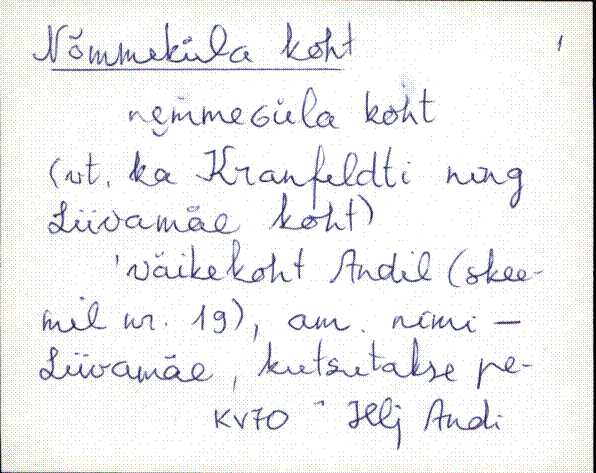 Nõmmeküla koht 1
nemmeGüla koht
(vt. ka Kranfeldti ning
Liivamäe koht)
'väikekoht Andil (skee-
mil nr. 19), am. nimi -
Liivamäe, kutsutakse pe-
KV70 Hlj Andi